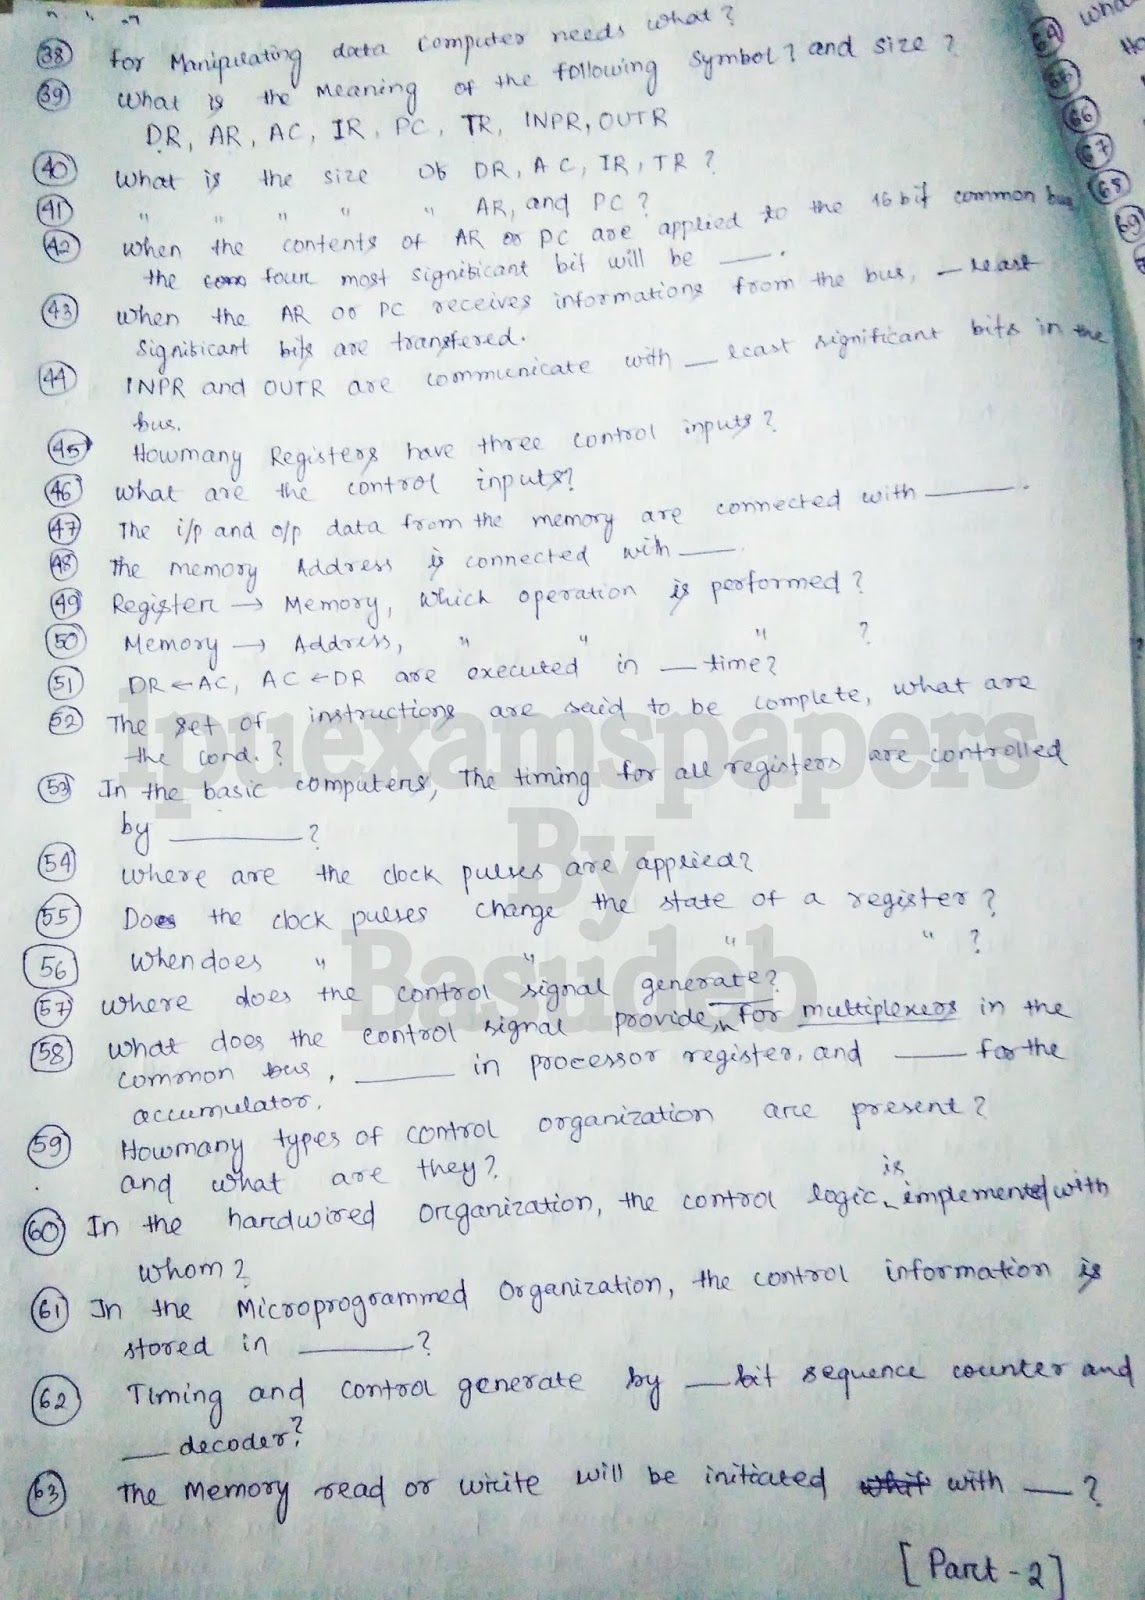 38 For Manipulating data computer needs what?
39 What is the Meaning of the following symbol? and size?
DR, AR, AC, IR, PC, TR, INPR, OUTR
40 What is the size of DR, AC, IR, TR?
41 " " " " " AR, and PC?
42 When the contents of AR or PC are applied to the 16 bit common bus
the four most significant bit will be ___.
43 When the AR or PC receives informations from the bus, _ least
significant bits are transfered.
44 INPR and OUTR are communicate with _ least significant bits in the
bus.
45 Howmany Registers have three control inputs?
46 What are the control inputs?
47 The i/p and o/p data from the memory are connected with ____.
48 The memory Address is connected with ___.
49 Register → Memory, Which operation is performed?
50 Memory → Address, " " " ?
51 DR ← AC, AC ← DR are executed in _ time?
52 The set of instructions are said to be complete, what are
the cond.?
53 In the basic computers, The timing for all registers are controlled
by ______?
54 Where are the clock pulses are applied?
55 Does the clock pulses change the state of a register?
56 When does " " " " ?
57 Where does the control signal generate?
58 What does the control signal provide, for multiplexers in the
common bus, ____ in processor register, and ___ for the
accumulator.
59 Howmany types of control organization are present?
and what are they?
60 In the hardwired organization, the control logic is implemented with
whom?
61 In the Microprogrammed Organization, the control information is
stored in _____?
62 Timing and control generate by __ bit sequence counter and
__ decoder?
63 The Memory read or write will be initiated with __?
[Part - 2]
64 wha
65
66
67
68
69
lpuexamspapers
By
Basudeb